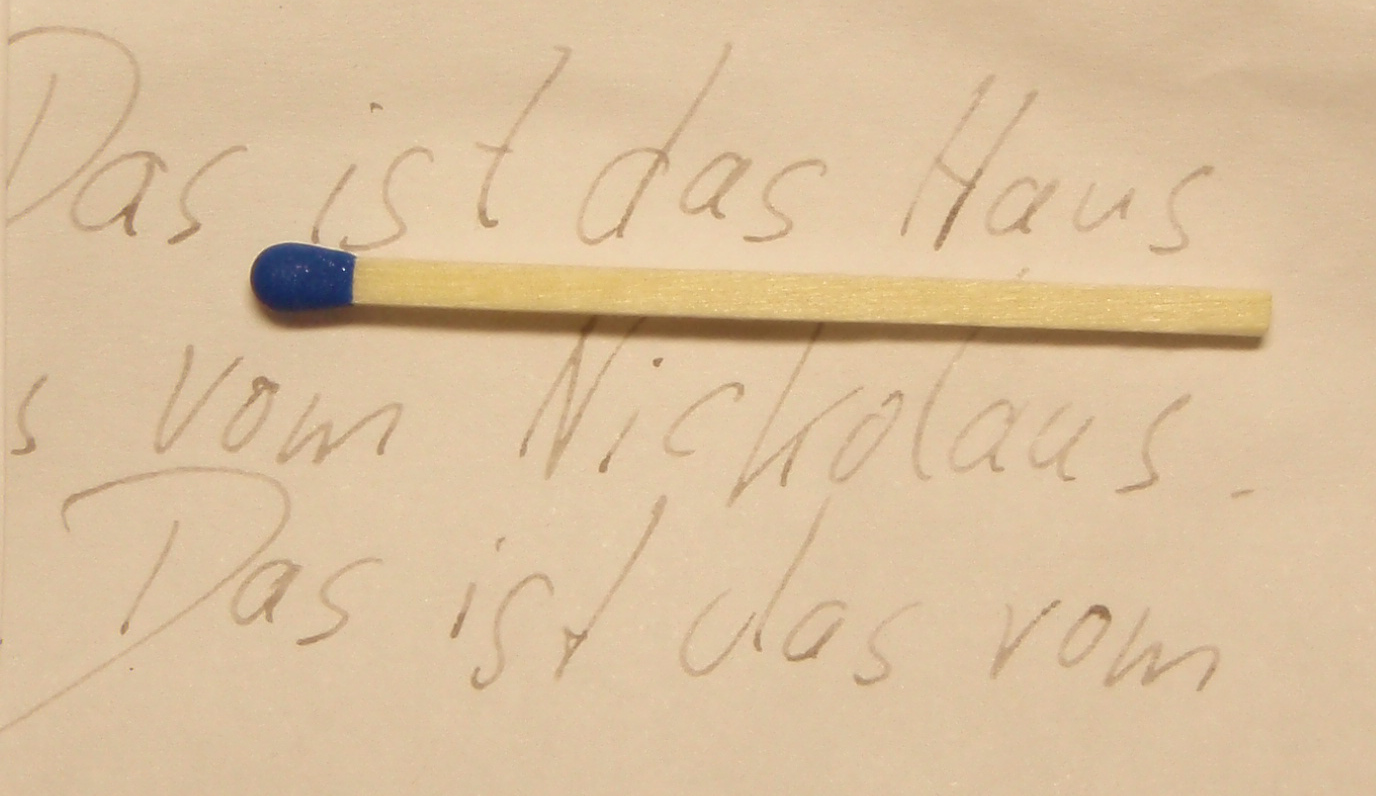 Das ist das Haus
s vom Nickolaus.
Das ist das vom